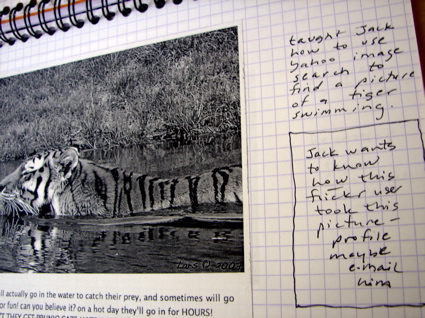 taught Jack
how to use
yahoo image
search to
find a picture
of a tiger
swimming.
Jack wants
to know
how this
flickr user
took this
picture -
profile
maybe
e-mail
him
ll actually go in the water to catch their prey, and sometimes will go
or fun! can you believe it? on a hot day they'll go in for HOURS!